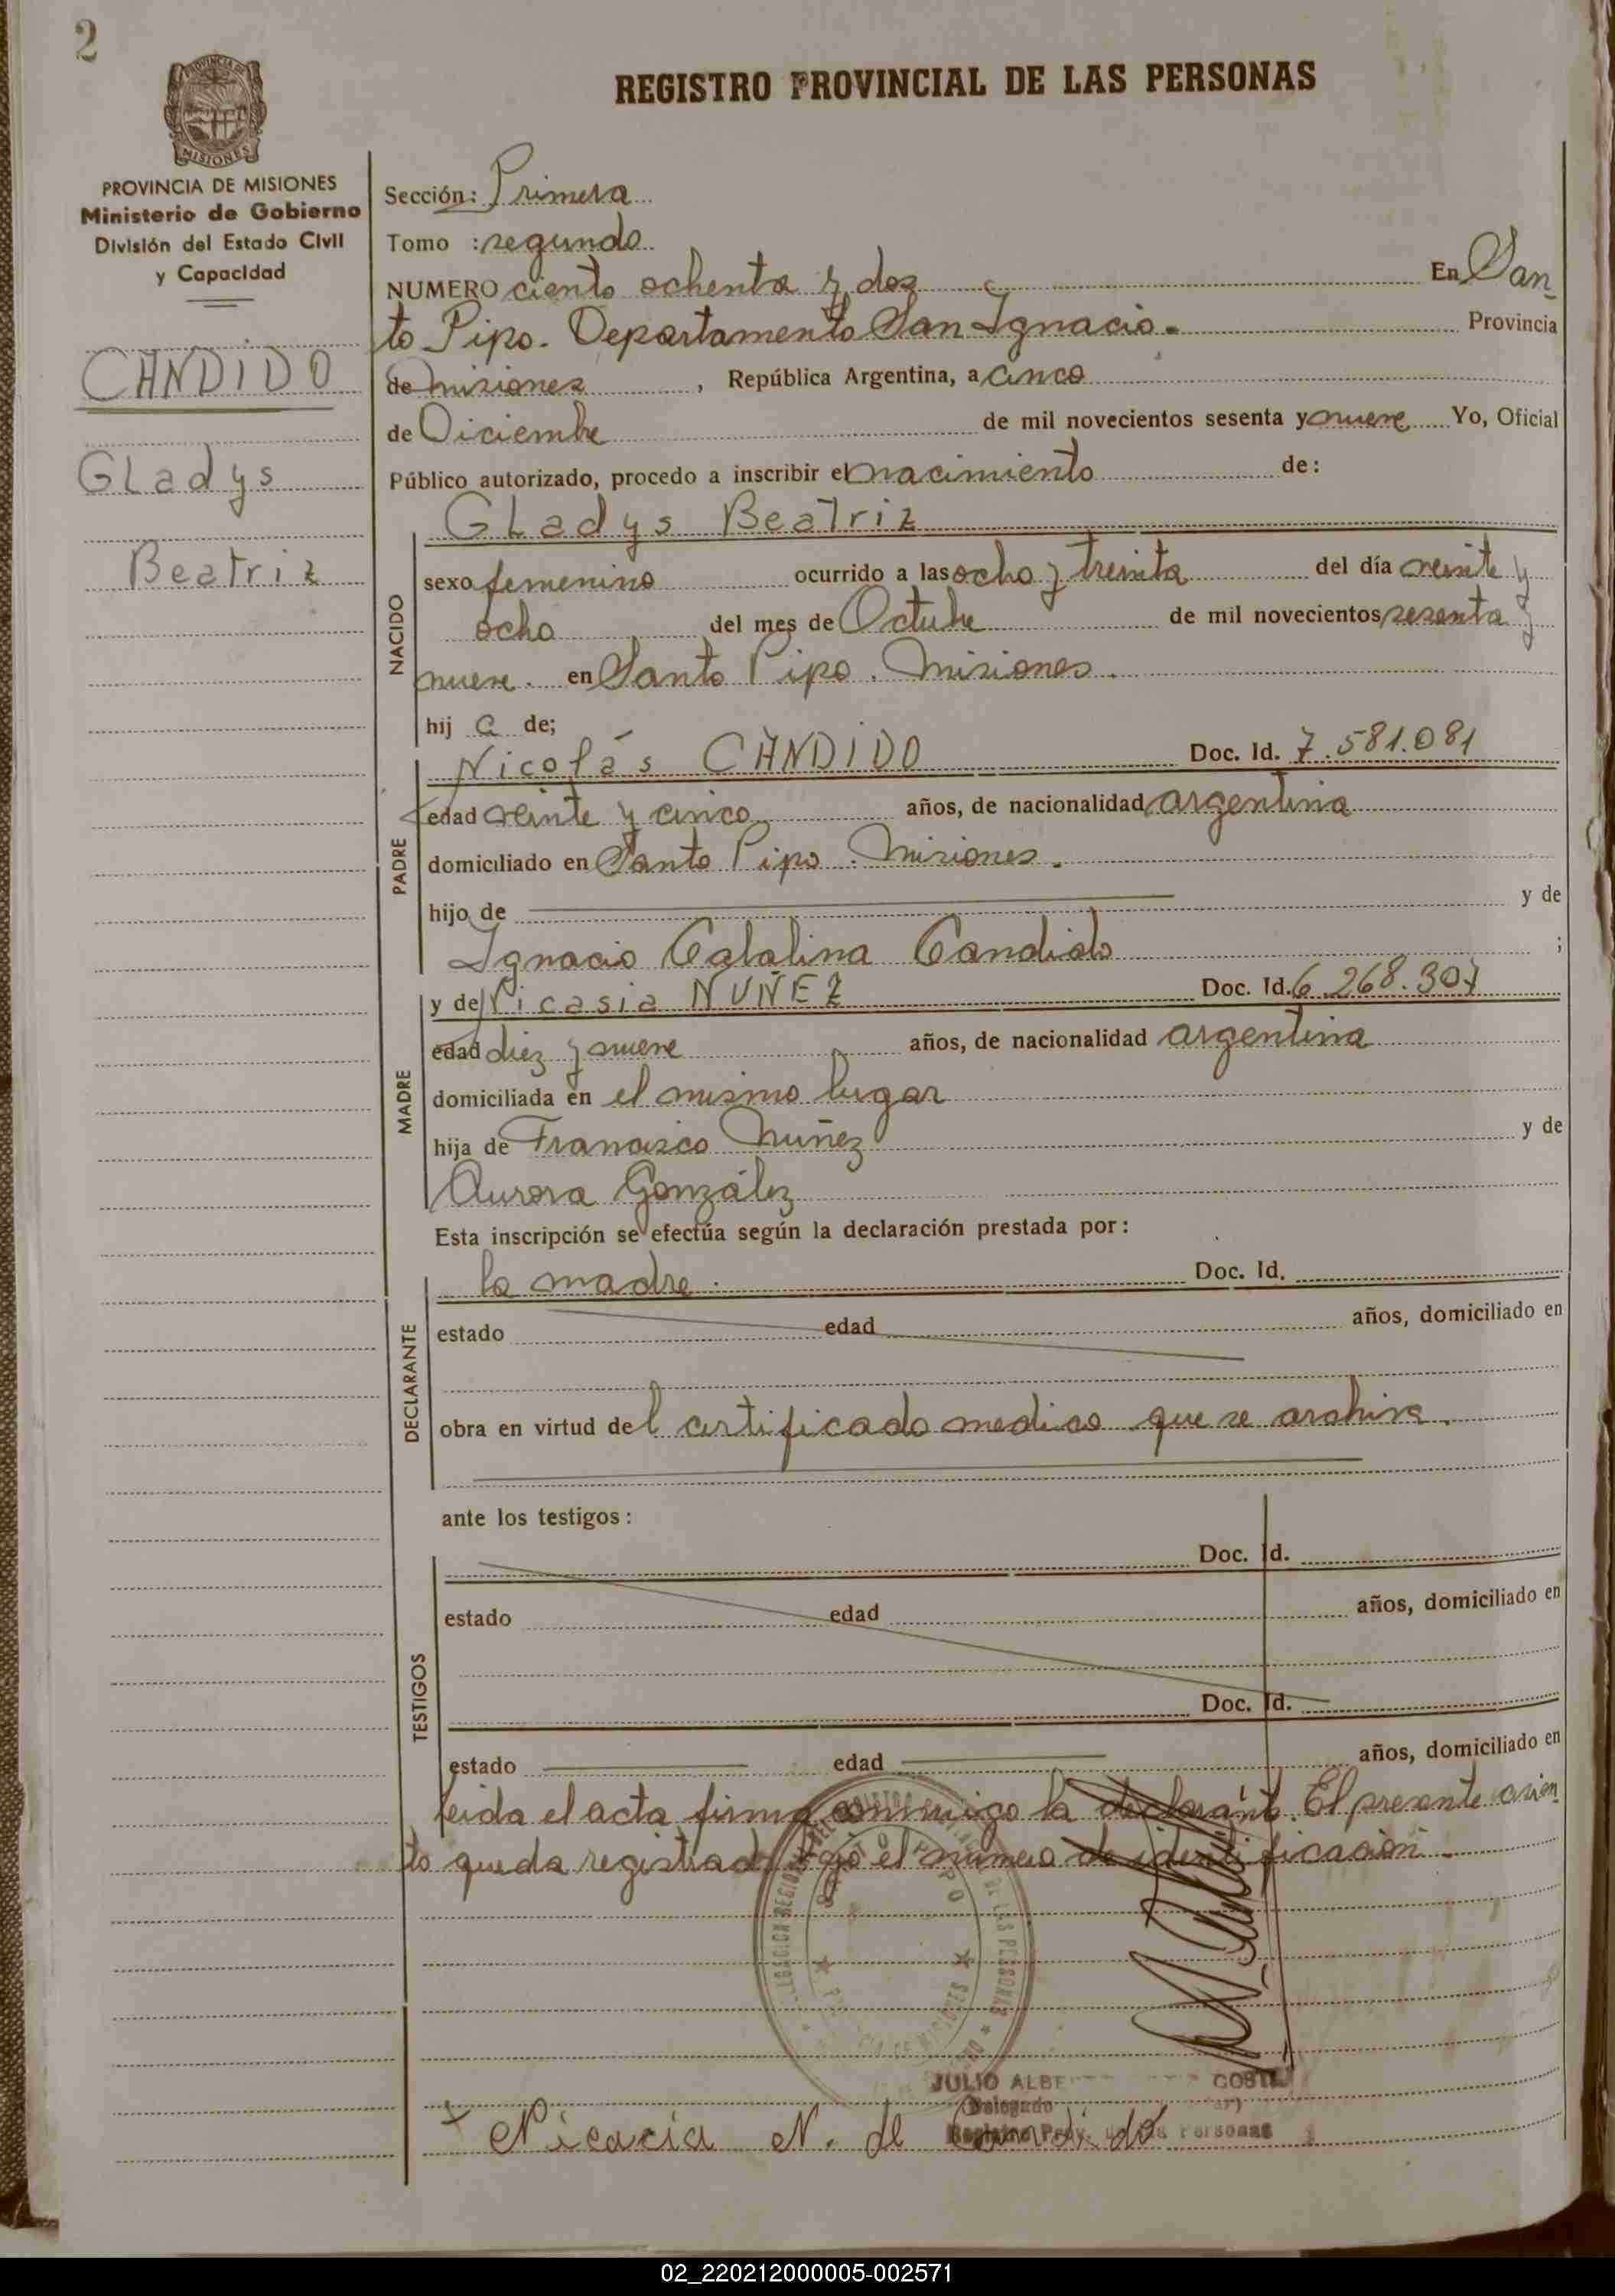 2
REGISTRO PROVINCIAL DE LAS PERSONAS
MISIONES
PROVINCIA DE MISIONES
Ministerio de Gobierno
División del Estado Civil
y Capacidad
CANDIDO
Gladys
Beatriz
Sección: Primera
Tomo : segundo
NUMERO ciento ochenta y dos En San
to Pipo. Departamento San Ignacio. Provincia
de misiones, República Argentina, a cinco
de Diciembre de mil novecientos sesenta y nueve Yo, Oficial
Público autorizado, procedo a inscribir el nacimiento de:
Gladys Beatriz
NACIDO
sexo femenino ocurrido a las ocho y treinta del día veinte y
ocho del mes de Octubre de mil novecientos sesenta y
nueve. en Santo Pipo. Misiones.
hij a de;
PADRE
Nicolás CANDIDO Doc. Id. 7.581.081
edad veinte y cinco años, de nacionalidad argentina
domiciliado en Santo Pipo. Misiones.
hijo de y de
Ignacio Catalina Candido ;
MADRE
y de Nicasia NUÑEZ Doc. Id. 6.268.307
edad diez y nueve años, de nacionalidad argentina
domiciliada en el mismo lugar
hija de Francisco Nuñez y de
Aurora González
Esta inscripción se efectúa según la declaración prestada por:
DECLARANTE
la madre. Doc. Id.
estado edad años, domiciliado en
obra en virtud del certificado medico que se archiva.
ante los testigos:
TESTIGOS
Doc. Id.
estado edad años, domiciliado en
Doc. Id.
estado edad años, domiciliado en
leida el acta firma conmigo la declarante. El presente asien
to queda registrado bajo el número de identificación.
SANTO PIPO
DE LAS PERSONAS
JULIO ALBE COSTE
Delegado
Registro Prov. de las Personas
Nicacia N. de Candido
02_220212000005-002571